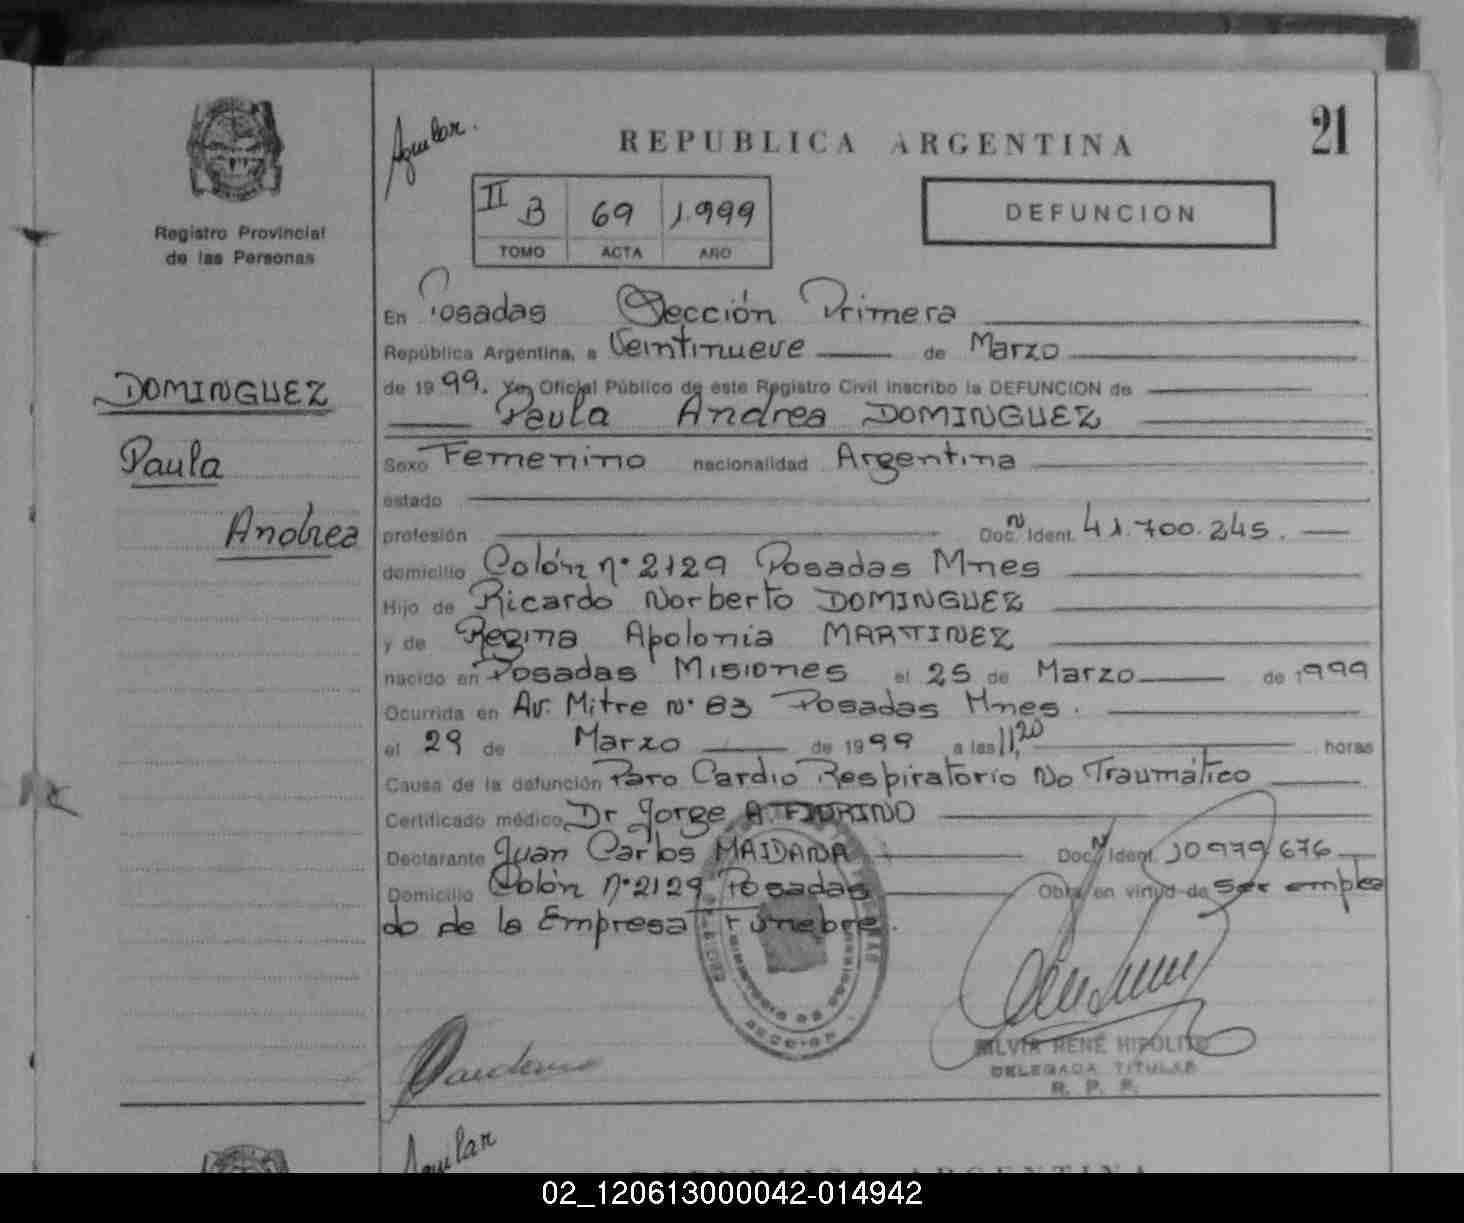 Aguilar.
REPUBLICA ARGENTINA
21
II B 69 1.999
TOMO ACTA AÑO
DEFUNCION
Registro Provincial
de las Personas
DOMINGUEZ
Paula
Andrea
En Posadas Sección Primera
República Argentina, a Veintinueve de Marzo
de 1999. Yo, Oficial Público de este Registro Civil inscribo la DEFUNCION de
Paula Andrea DOMINGUEZ
Sexo Femenino nacionalidad Argentina
estado
profesión Doc. Ident. Nº 41.700.245.
domicilio Colón nº 2129 Posadas Mnes
Hijo de Ricardo Norberto DOMINGUEZ
y de Regina Apolonia MARTINEZ
nacido en Posadas Misiones el 25 de Marzo de 1999
Ocurrida en Av. Mitre Nº 83 Posadas Mnes.
el 29 de Marzo de 1999 a las 11,20 horas
Causa de la defunción Paro Cardio Respiratorio No Traumático
Certificado médico Dr Jorge A. FIORINO
Declarante Juan Carlos MAIDANA Doc. Ident. N 10979676
Domicilio Colón nº 2129 Posadas Obra en virtud de ser emplea
do de la Empresa Funebre.
SILVIA RENE HIPOLITO
DELEGADA TITULAR
R. P. P.
Aguilar
REPUBLICA ARGENTINA
02_120613000042-014942